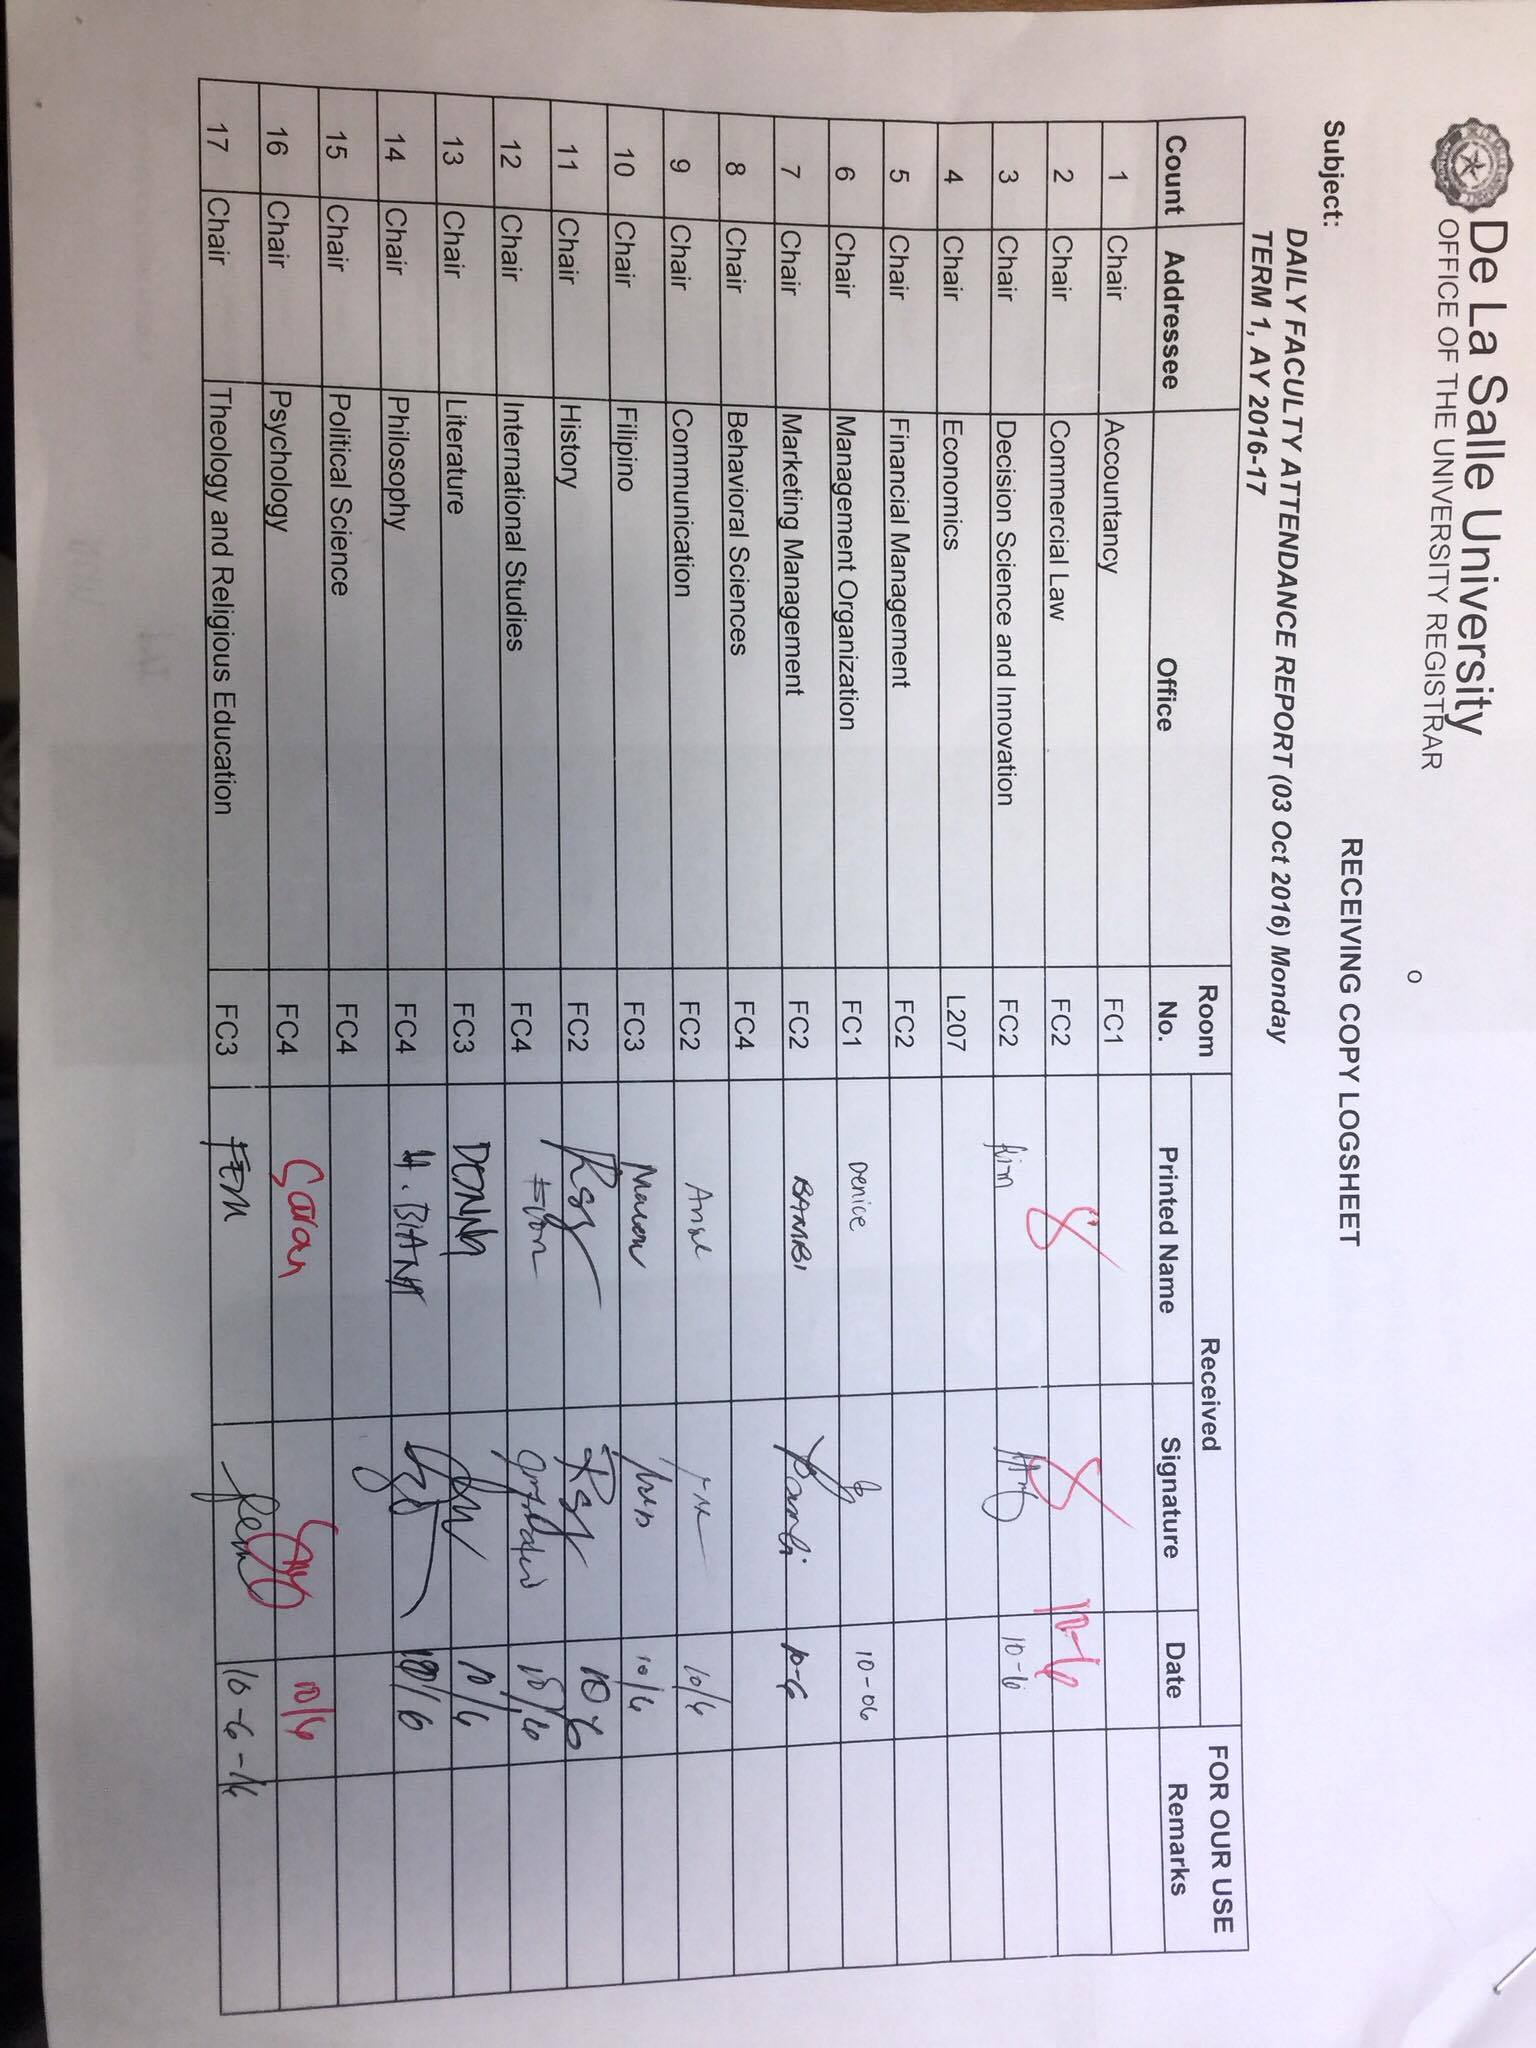 De La Salle University
OFFICE OF THE UNIVERSITY REGISTRAR
o
RECEIVING COPY LOGSHEET
Subject:
DAILY FACULTY ATTENDANCE REPORT (03 Oct 2016) Monday
TERM 1, AY 2016-17
Count Addressee Office Room No. Received Printed Name Signature Date FOR OUR USE Remarks
1 Chair Accountancy FC1
2 Chair Commercial Law FC2 8 8 10-6
3 Chair Decision Science and Innovation FC2 Kim 10-6
4 Chair Economics L207
5 Chair Financial Management FC2
6 Chair Management Organization FC1 Denice 10-06
7 Chair Marketing Management FC2 BAMBI Bambi 10-6
8 Chair Behavioral Sciences FC4
9 Chair Communication FC2 10/6
10 Chair Filipino FC3 10/6
11 Chair History FC2 10 6
12 Chair International Studies FC4 10/6
13 Chair Literature FC3 DONNA 10/6
14 Chair Philosophy FC4 H. BIANA 10/6
15 Chair Political Science FC4
16 Chair Psychology FC4 Sarah 10/6
17 Chair Theology and Religious Education FC3 FEM fem 10-6-16